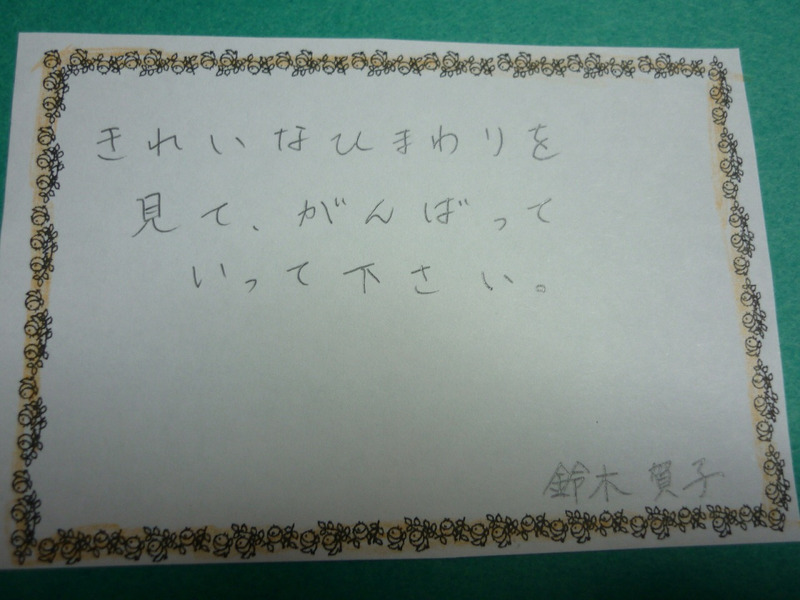 きれいなひまわりを
見て、がんばって
いって下さい。
鈴木 賀子